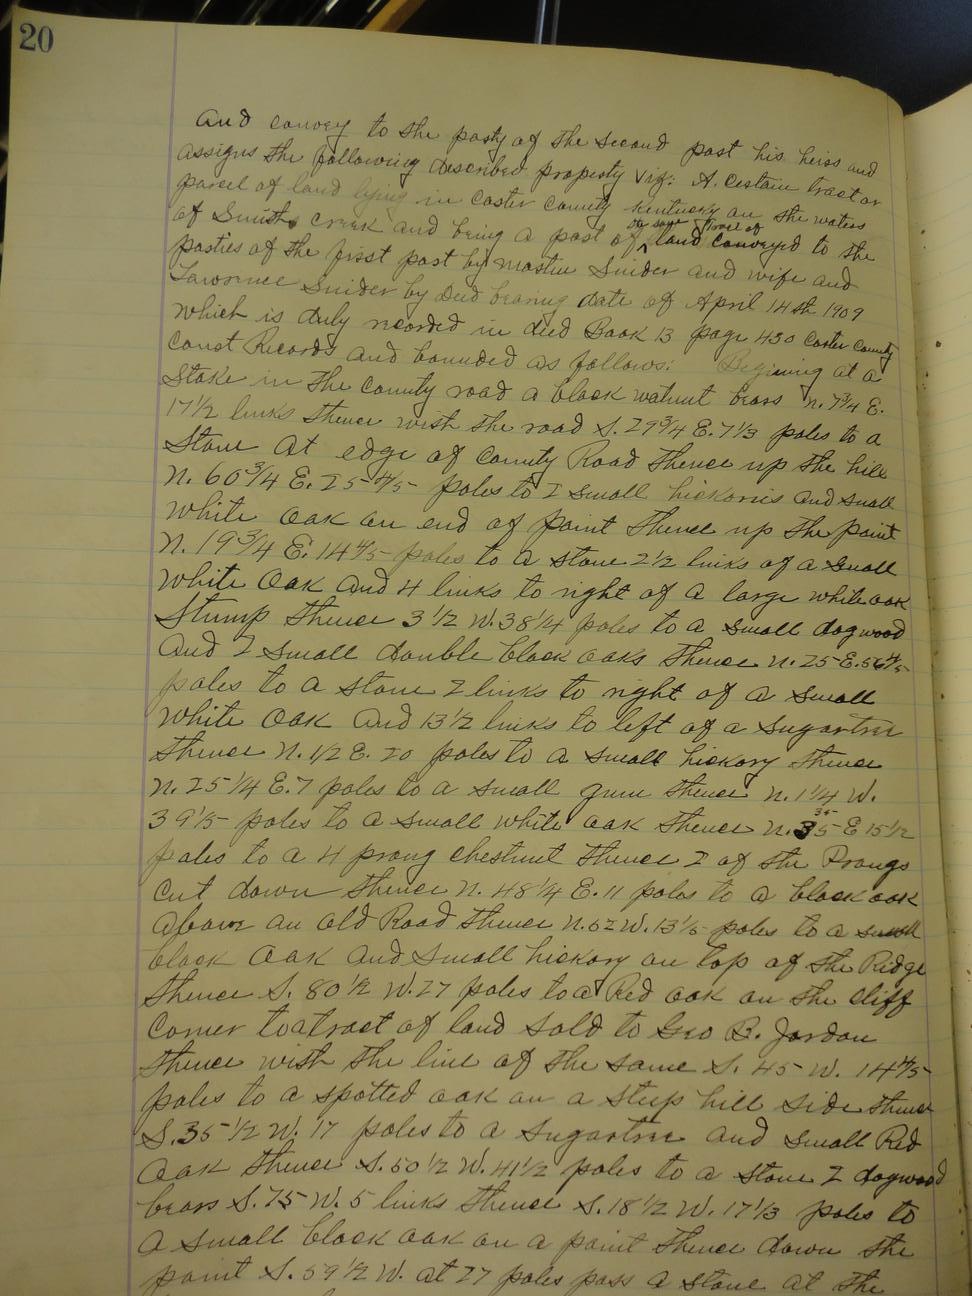 20
and convey to the party of the second part his heirs and
assigns the following described property viz: A certain tract or
parcel of land lying in Carter County Kentucky on the waters
of Smiths creek and being a part of the same tract of land conveyed to the
parties of the first part by Snider and wife and
Lawrence Snider by deed bearing date of April 14th 1909
which is duly recorded in deed Book 13 page 430 Carter County
Court Records and bounded as follows: Begining at a
Stake in the County road a black walnut bears N. 7 3/4 E.
17 1/2 links thence with the road S. 29 3/4 E. 7 1/3 poles to a
Stone at edge of County Road thence up the hill
N. 60 3/4 E. 25 4/5 poles to 2 small hickories and small
white oak on end of point thence up the point
N. 19 3/4 E. 14 4/5 poles to a stone 2 1/2 links of a small
white Oak and 4 links to right of a large white oak
Stump thence 3 1/2 W. 38 1/4 poles to a small dogwood
and 2 small double black oaks thence N. 25 E. 56 4/5
poles to a stone 2 links to right of a small
white oak and 13 1/2 links to left of a Sugartree
thence N. 1/2 E. 20 poles to a small hickory thence
N. 25 1/4 E. 7 poles to a small gum thence N. 1 1/4 W.
39 1/5 poles to a small white oak thence N. 35 35 E 15 1/2
poles to a 4 prong chestnut thence 2 of the Prongs
cut down thence N. 48 1/4 E. 11 poles to a black oak
above an old Road thence N. 62 W. 13 1/5 poles to a small
black oak and small hickory on top of the Ridge
thence S. 80 1/2 W. 27 poles to a Red oak on the cliff
corner to a tract of land sold to Geo B. Jordan
thence with the line of the same S. 45 W. 14 4/5
poles to a spotted oak on a steep hill side thence
S. 35 1/2 W. 17 poles to a sugartree and small Red
oak thence S. 50 1/2 W. 41 1/2 poles to a stone 2 dogwood
bears S. 75 W. 5 links thence S. 18 1/2 W. 17 1/3 poles to
a small black oak on a point thence down the
point S. 59 1/2 W. at 27 poles pass a stone at the